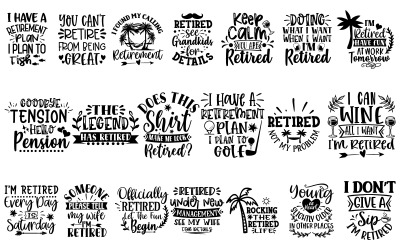 I HAVE A
RETIREMENT
PLAN
I PLAN TO
Fish
YOU CAN'T
RETIRE
FROM BEING
GREAT
FOUND MY CALLING
Retirement
RETIRED
SEE
Grandkids
FOR
DETAILS
KEEP
CALM
YOU ARE
Retired
DOING
WHAT I WANT
WHEN I WANT
I'M
Retired
I'M
Retired
HAVE FUN
AT WORK
TOMORROW
GOODBYE
TENSION
Hello
Pension
THE
LEGEND
HAS RETIRED
DOES THIS
Shirt
MAKE ME LOOK
Retired?
I HAVE A
RETIREMENT
PLAN
I PLAN TO GOLF
RETIRED
NOT MY PROBLEM
I CAN
WINE
ALL I WANT
I'M RETIRED
I'M RETIRED
Every Day
IS
Saturday
SOMEONE
PLEASE TELL
my wife
I'M
RETIRED
Officially
RETIRED
Let the Fun
Begin
RETIRED
under new
MANAGEMENT
SEE MY WIFE
FOR DETAILS
ROCKING
THE
RETIRED
LIFE
Young
AT HEART
SLIGHTLY OLDER
IN OTHER PLACES
I DON'T
GIVE A
Sip
I'M RETIRED